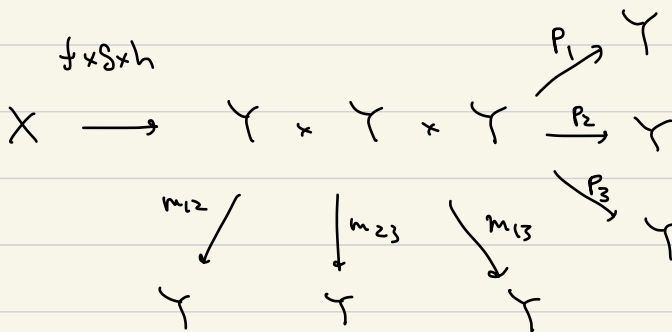 f×g×h P₁ Y
X → Y × Y × Y P₂ Y
P₃ Y
m₁₂ m₂₃ m₁₃
Y Y Y